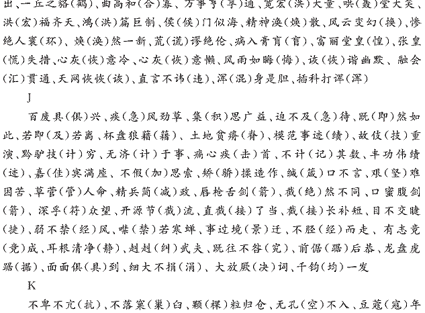 出、一丘之貉(鹤)、曲高和(合)寡、万事亨(享)通、宽宏(洪)大量、哄(轰)堂大笑、
宏(洪)福齐天、鸿(洪)篇巨制、侯(候)门似海、精神涣(焕)散、风云变幻(换)、惨
绝人寰(环)、焕(涣)然一新、荒(谎)谬绝伦、病入膏肓(盲)、富丽堂皇(惶)、张皇
(慌)失措、心灰(恢)意冷、心灰(恢)意懒、风雨如晦(悔)、诙(恢)谐幽默、融会
(汇)贯通、天网恢恢(诙)、直言不讳(违)、浑(混)身是胆、插科打诨(浑)
J
百废具(俱)兴、疾(急)风劲草、集(积)思广益、迫不及(急)待、既(即)然如
此、若即(及)若离、杯盘狼藉(籍)、土地贫瘠(脊)、模范事迹(绩)、故伎(技)重
演、黔驴技(计)穷、无济(计)于事、痛心疾(击)首、不计(记)其数、丰功伟绩
(迹)、嘉(佳)宾满座、不假(加)思索、矫(骄)揉造作、缄(箴)口不言、艰(坚)难
困苦、草菅(管)人命、精兵简(减)政、唇枪舌剑(箭)、截(绝)然不同、口蜜腹剑
(箭)、深孚(符)众望、开源节(截)流、直截(接)了当、截(接)长补短、目不交睫
(捷)、弱不禁(经)风、噤(禁)若寒蝉、事过境(景)迁、不胫(经)而走、有志竟
(竞)成、耳根清净(静)、赳赳(纠)武夫、既往不咎(究)、前倨(踞)后恭、龙盘虎
踞(据)、面面俱(具)到、细大不捐(涓)、大放厥(决)词、千钧(均)一发
K
不卑不亢(抗)、不落窠(巢)臼、颗(棵)粒归仓、无孔(空)不入、豆蔻(寇)年